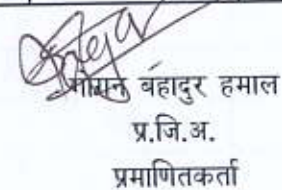 बहादुर हमाल
प्र.जि.अ.
प्रमाणितकर्ता